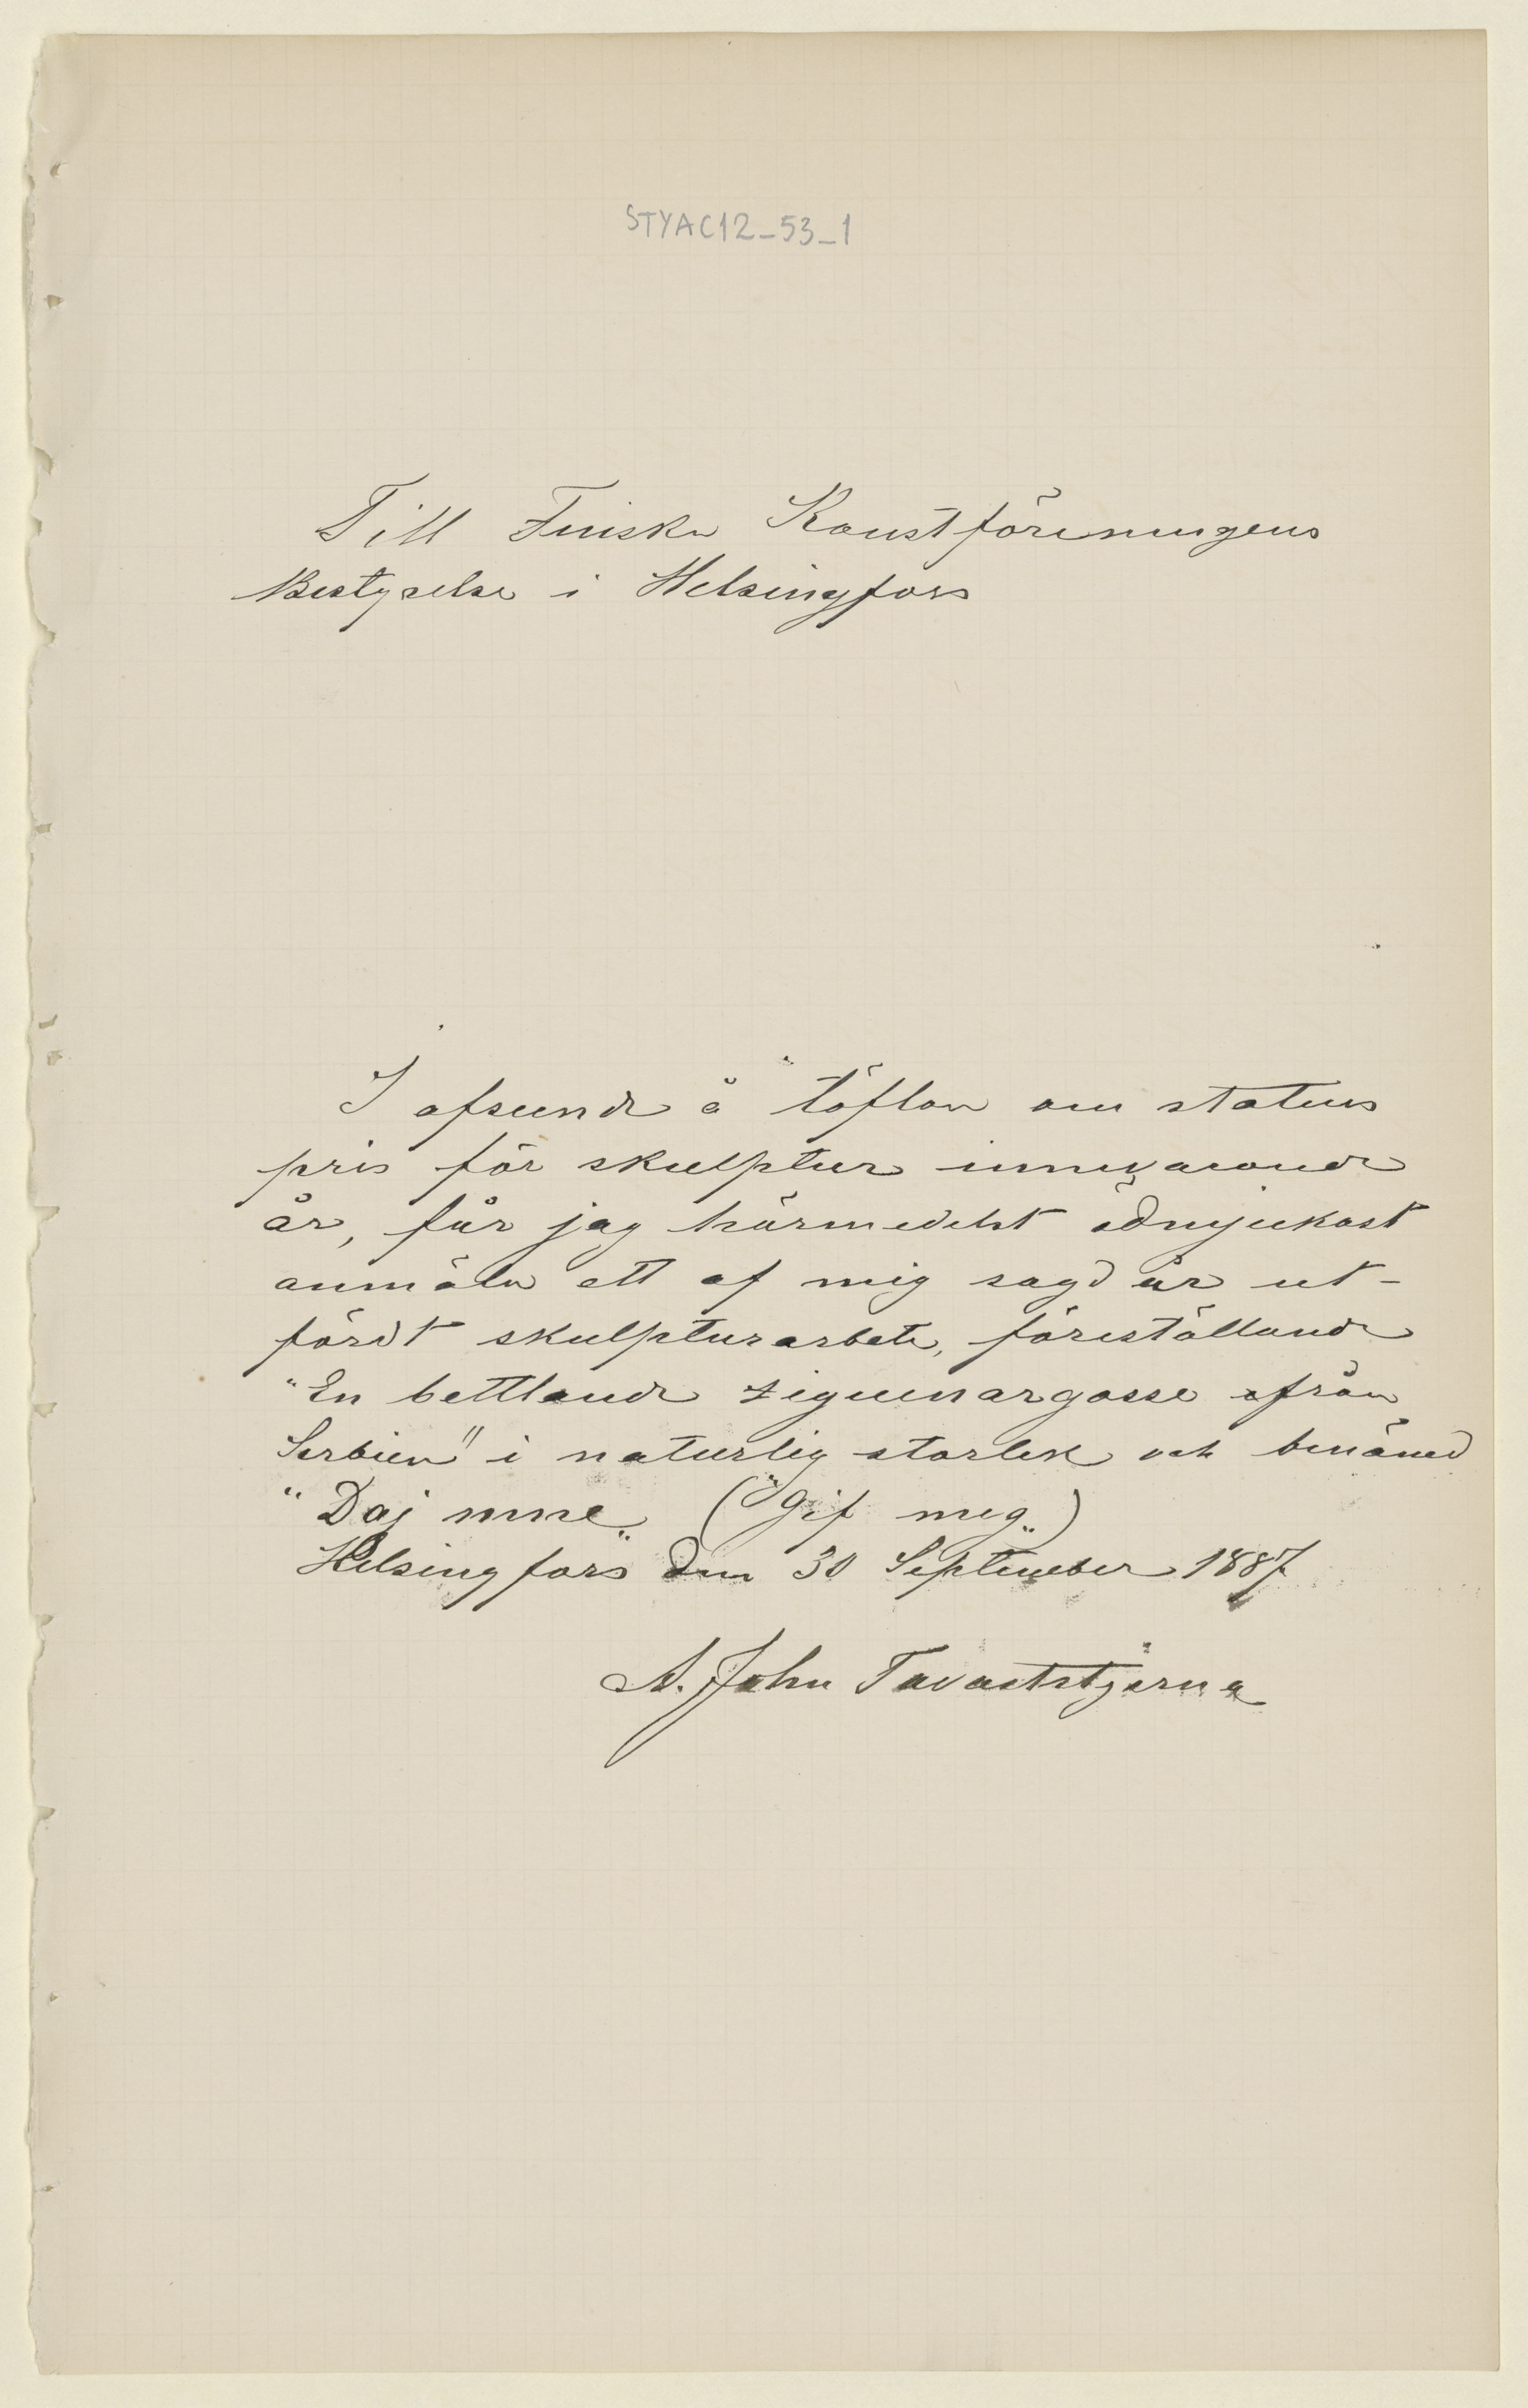 STYAC12_53_1
Till Finska Konstföreningens
Bestyrelse i Helsingfors
I afseende å täflan om statens
pris för skulptur innevarande
år, får jag härmedelst ödmjukast
anmäla ett af mig sagd år ut-
fördt skulpturarbete, föreställande
"En bettlande zigeunargosse från
Serbien" i naturlig storlek och benämd
"Daj mne" ("Gif mig")
Helsingfors den 30 September 1887
A. John Tavaststjerna